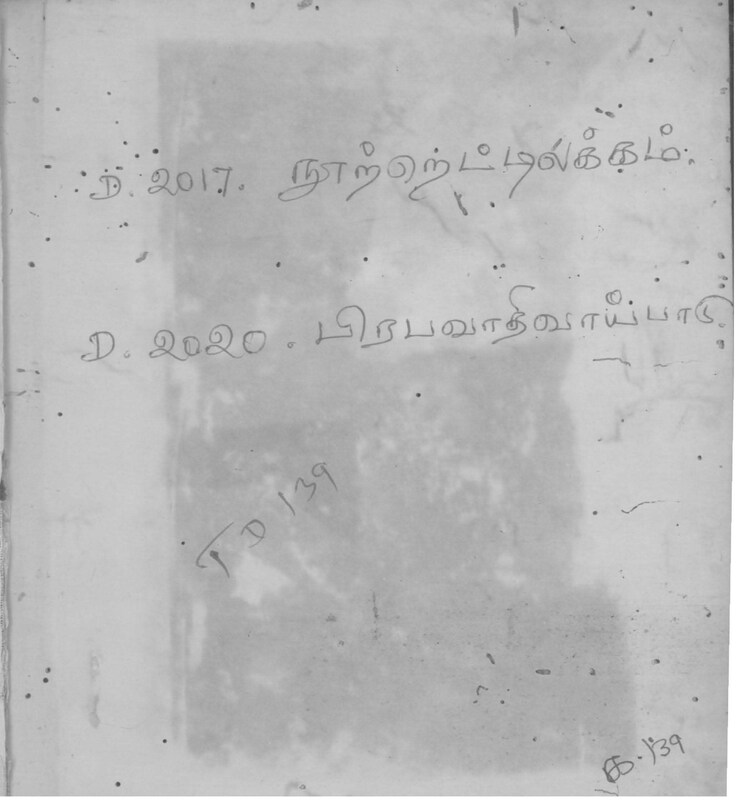 D. 2017. நூற்றெட்டிலக்கம்.
D. 2020. பிரபவாதிவாய்ப்பாடு.
TD 139
க. 139